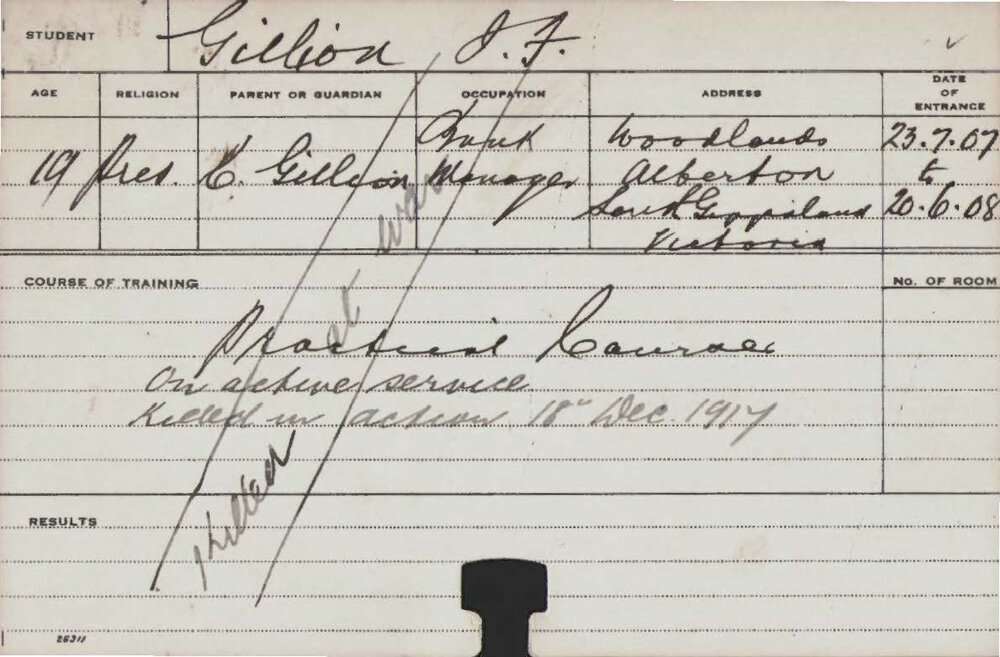 STUDENT Gillion J. F.
AGE RELIGION PARENT OR GUARDIAN OCCUPATION ADDRESS DATE OF ENTRANCE
19 Pres. Gillion Bank Manager Woodlands 23.7.07
Alberton to
South Gippsland 20.6.08
Victoria
COURSE OF TRAINING No. OF ROOM
Practical Course
On active service
Killed in action 18th Dec. 1917
Killed at war
RESULTS
26311